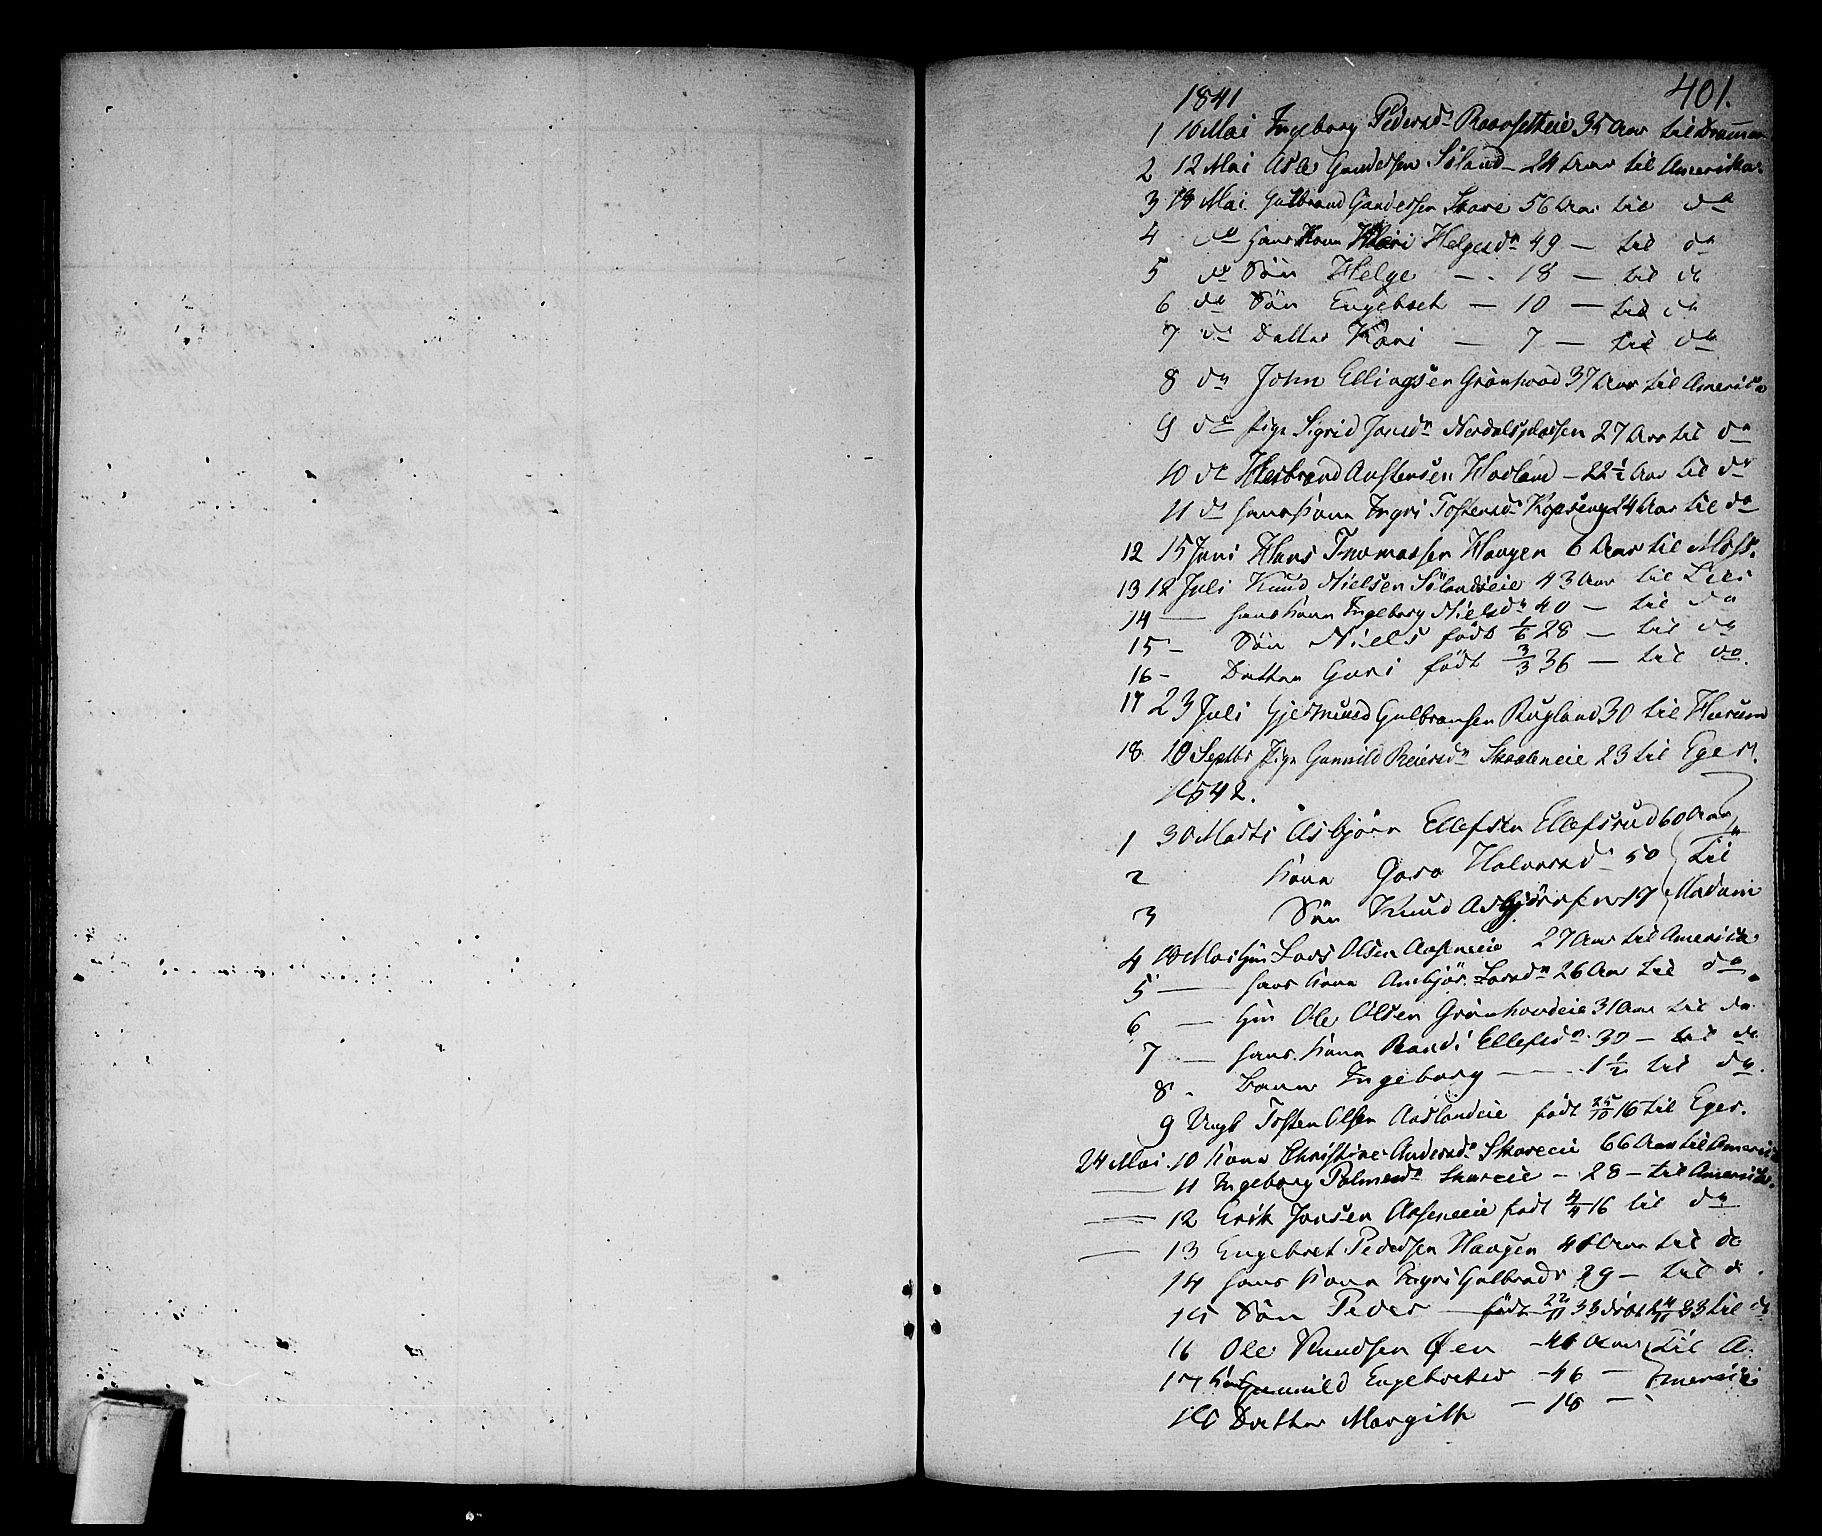 401.
1841
1 10 Mai Ingeborg Pedersdr Roorsetteie 35 Aar til Drammen
2 12 Mai Asle Gundersen Söland - 24 Aar til Amerika.
3 18 Mai. Gulbrand Gundersen Skare 56 Aar til do
4 do hans Kone Kari Helgesdr 49 - til do
5 do Sön Helge - 18 - til do
6 do Sön Engebret - 10 - til do
7 do Datter Kari - 7 - til do
8 do John Ellingsen Grönhovd 37 Aar til Amerika
9 do Pige Sigrid Jonsdr Nerdalsplassen 27 Aar til do
10 do Herbrand Anstensen Hovland - 22 1/2 Aar til do
11 do hans Kone Ingri Tostensdr Kopseng 24 Aar til do
12 15 Juni Hans Thomassen Haugen 6 Aar til Moss.
13 12 Juli Knud Nielsen Sölandseie 43 Aar til Lier
14 — hans Kone Ingeborg Nielsdr 40 - til do
15 - Sön Niels født 1/6 28 - til do
16 - Datter Guri født 3/3 36 - til do.
17 23 Juli Gjermund Gulbransen Rugland 30 til Hurum
18. 10 Septbr Pige Gunnild Reiersdr Skaaleneie 23 til Eger.
1842.
1 30 Marts Asbjörn Ellefsen Ellefsrud 60 Aar
2 Kone Goro Halvorsdr 50 til
3 Sön Knud Asbjörnsen 17 Modum
4 10 Mai Gm Lars Olsen Aaseneie 27 Aar til Amerika
5 — hans Kone Ambjör Larsdr 26 Aar til do.
6 — Gm Ole Olsen Grönhovdeie 31 Aar til do
7 — hans Kone Randi Ellefsdr 30 - til do
8 . Barn Ingeborg — 1 1/2 til do.
9 Ungk Tosten Olsen Aaslandeie født 25/10 16 til Eger.
24 Mai. 10 Kone Christine Andersdr Skareeie 66 Aar til Amerika
— 11 Ingeborg Palmesdr Skareeie - 28 - til Amerika.
— 12 Erik Jonsen Aaseneeie født 4/4 16 til do
— 13 Engebret Pedersen Haugen 41 Aar til do
14 hans Kone Ingri Gulbrandsdr 29 - til do.
15 Sön Peder — født 22/11 33 til do
16 Ole Knudsen Øen - 46 Aar til A
17 Kone Gunnild Engebretsdr - 46 - merika
18 Datter Margith - 18 -